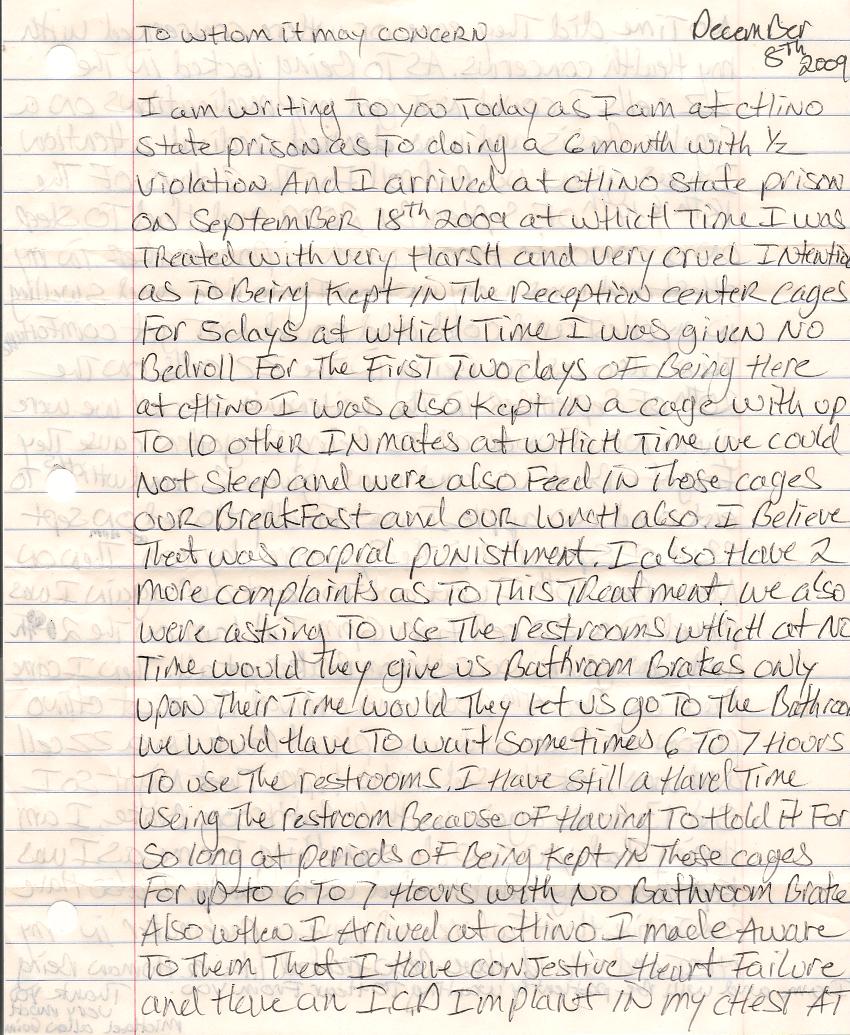 To whom it may concern December
8th 2009
I am writing to you today as I am at chino
state prison as to doing a 6 month with 1/2
violation. And I arrived at chino state prison
on September 18th 2009 at which time I was
treated with very harsh and very cruel Intentio
as to Being kept in the Reception center cages
For 5 days at which time I was given no
Bedroll For the First two days of Being Here
at chino I was also kept in a cage with up
to 10 other Inmates at which time we could
not sleep and were also Feed in those cages
our BreakFast and our lunch also. I Believe
that was corpral punishment. I also Have 2
more complaints as to this treatment. we also
were asking to use the restrooms which at no
time would they give us Bathroom Brakes only
upon their time would they let us go to the Bathroom
we would Have to wait sometimes 6 to 7 Hours
to use the restrooms. I Have still a Hard time
useing the restroom Because of Having to Hold it For
so long at periods of Being kept in these cages
For up to 6 to 7 Hours with no Bathroom Brake
Also when I Arrived at chino I made Aware
to them that I Have conjestive Heart Failure
and Have an I.C.D Implant in my chest At